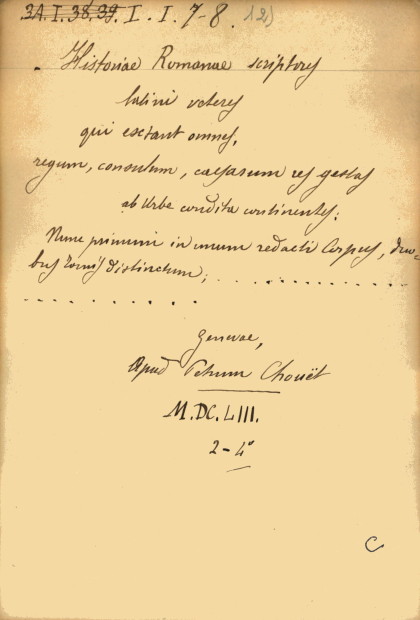 3A. I. 38.39. I. I. 7-8. 12)
Historiae Romanae scriptores
latini veteres
qui extant omnes,
regum, consulum, caesarum res gestas
ab Urbe condita continentes;
Nunc primum in unum redacti Corpus, duo-
bus tomis distinctum; . . . . . . . . . . . .
. . . . . . . . . . .
Genevae,
Apud Petrum Chouët
M.DC.LIII.
2-4°
C